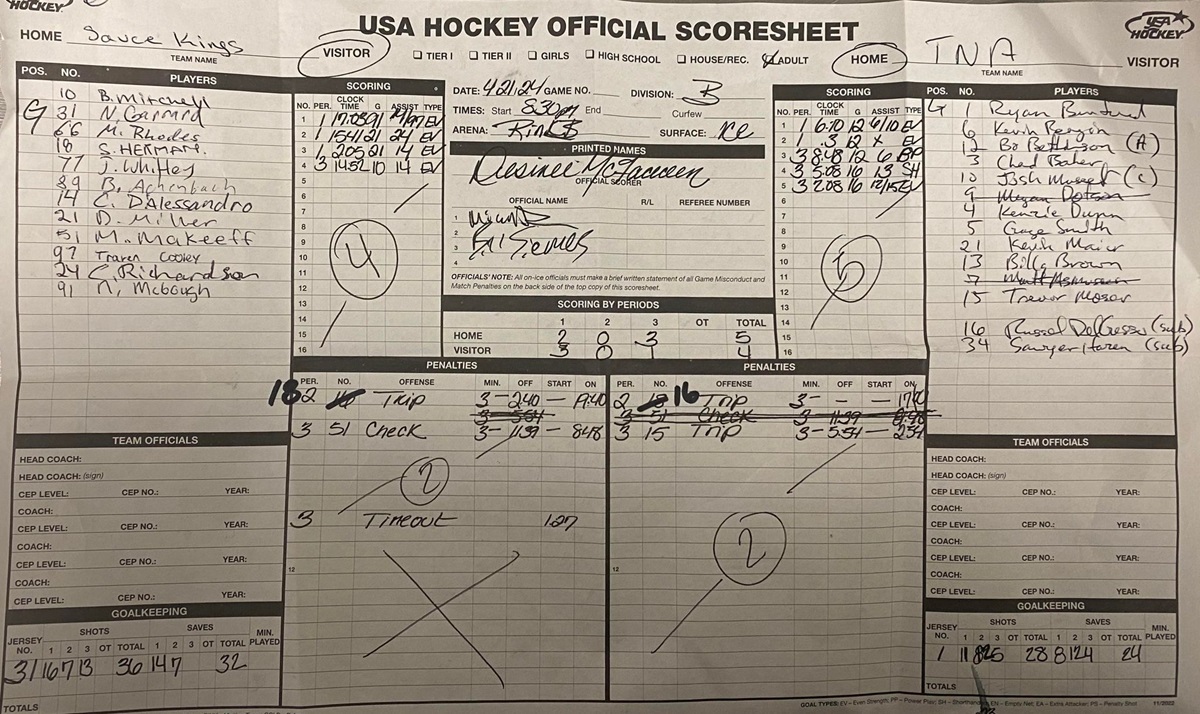 HOCKEY
USA HOCKEY OFFICIAL SCORESHEET
USA HOCKEY
HOME Sauce Kings
TEAM NAME
VISITOR
TIER I TIER II GIRLS HIGH SCHOOL HOUSE/REC. ADULT
HOME
TNA
TEAM NAME
VISITOR
POS. NO. PLAYERS
10 B. Mitchell
G 31 N. Garrard
66 M. Rhodes
18 S. HERMAN.
77 J. Whitley
89 B. Achenbach
14 C. D'Alessandro
21 D. Miller
51 M. Makeeff
97 Traven Cooley
24 C. Richardson
91 N. McGough
SCORING
NO. PER. CLOCK TIME G ASSIST TYPE
1 1 17:08 91 24/97 EV
2 1 15:41 21 24 EV
3 1 2:05 21 14 EV
4 3 14:52 10 14 EV
5
6
7
8
9
10
11
12
13
14
15
16
4
DATE: 4.21.24 GAME NO. DIVISION: B
TIMES: Start 8:30pm End Curfew
ARENA: Rink B SURFACE: Ice
PRINTED NAMES
Desiree
OFFICIAL SCORER
OFFICIAL NAME R/L REFEREE NUMBER
1
2
3
4
OFFICIALS' NOTE: All on-ice officials must make a brief written statement of all Game Misconduct and Match Penalties on the back side of the top copy of this scoresheet.
SCORING BY PERIODS
1 2 3 OT TOTAL
HOME 2 0 3 5
VISITOR 3 0 1 4
SCORING
NO. PER. CLOCK TIME G ASSIST TYPE
1 1 6:70 12 6/10 EV
2 1 .3 12 x EV
3 3 8:48 12 6 PP
4 3 5:08 16 13 SH
5 3 2:08 16 12/15 EV
6
7
8
9
10
11
12
13
14
15
16
5
POS. NO. PLAYERS
G 1 Ryan
6 Kevin Bergin
12 Bo (A)
3 Chad Baker
10 Josh (C)
9 Megan Dotson
4 Kenzie Dunn
5 Gage Smith
21 Kevin Maier
13 Billy Brown
7 Matt Asmussen
15 Trevor Moser
16 Russel DelGesso (sub)
34 Sawyer Haren (sub)
PENALTIES
PER. NO. OFFENSE MIN. OFF START ON
2 18 Trip 3 - 2:40 - 19:40
3 5:54
3 51 Check 3 - 11:39 - 8:48
2
3 Timeout 1:27
12
PENALTIES
PER. NO. OFFENSE MIN. OFF START ON
2 16 Trip 3 - - - 17:00
3 51 Check 3 - 11:39
3 15 Trip 3 - 5:54 - 2:54
2
12
TEAM OFFICIALS
HEAD COACH:
HEAD COACH: (sign)
CEP LEVEL: CEP NO.: YEAR:
COACH:
CEP LEVEL: CEP NO.: YEAR:
COACH:
CEP LEVEL: CEP NO.: YEAR:
COACH:
CEP LEVEL: CEP NO.: YEAR:
GOALKEEPING
JERSEY NO. SHOTS 1 2 3 OT TOTAL SAVES 1 2 3 OT TOTAL MIN. PLAYED
31 16 7 13 36 14 7 32
TOTALS
TEAM OFFICIALS
HEAD COACH:
HEAD COACH: (sign)
CEP LEVEL: CEP NO.: YEAR:
COACH:
CEP LEVEL: CEP NO.: YEAR:
COACH:
CEP LEVEL: CEP NO.: YEAR:
COACH:
CEP LEVEL: CEP NO.: YEAR:
GOALKEEPING
JERSEY NO. SHOTS 1 2 3 OT TOTAL SAVES 1 2 3 OT TOTAL MIN. PLAYED
1 11 12 5 28 8 12 4 24
TOTALS
GOAL TYPES: EV – Even Strength, PP – Power Play, SH – Shorthanded, EN – Empty Net, EA – Extra Attacker, PS – Penalty Shot